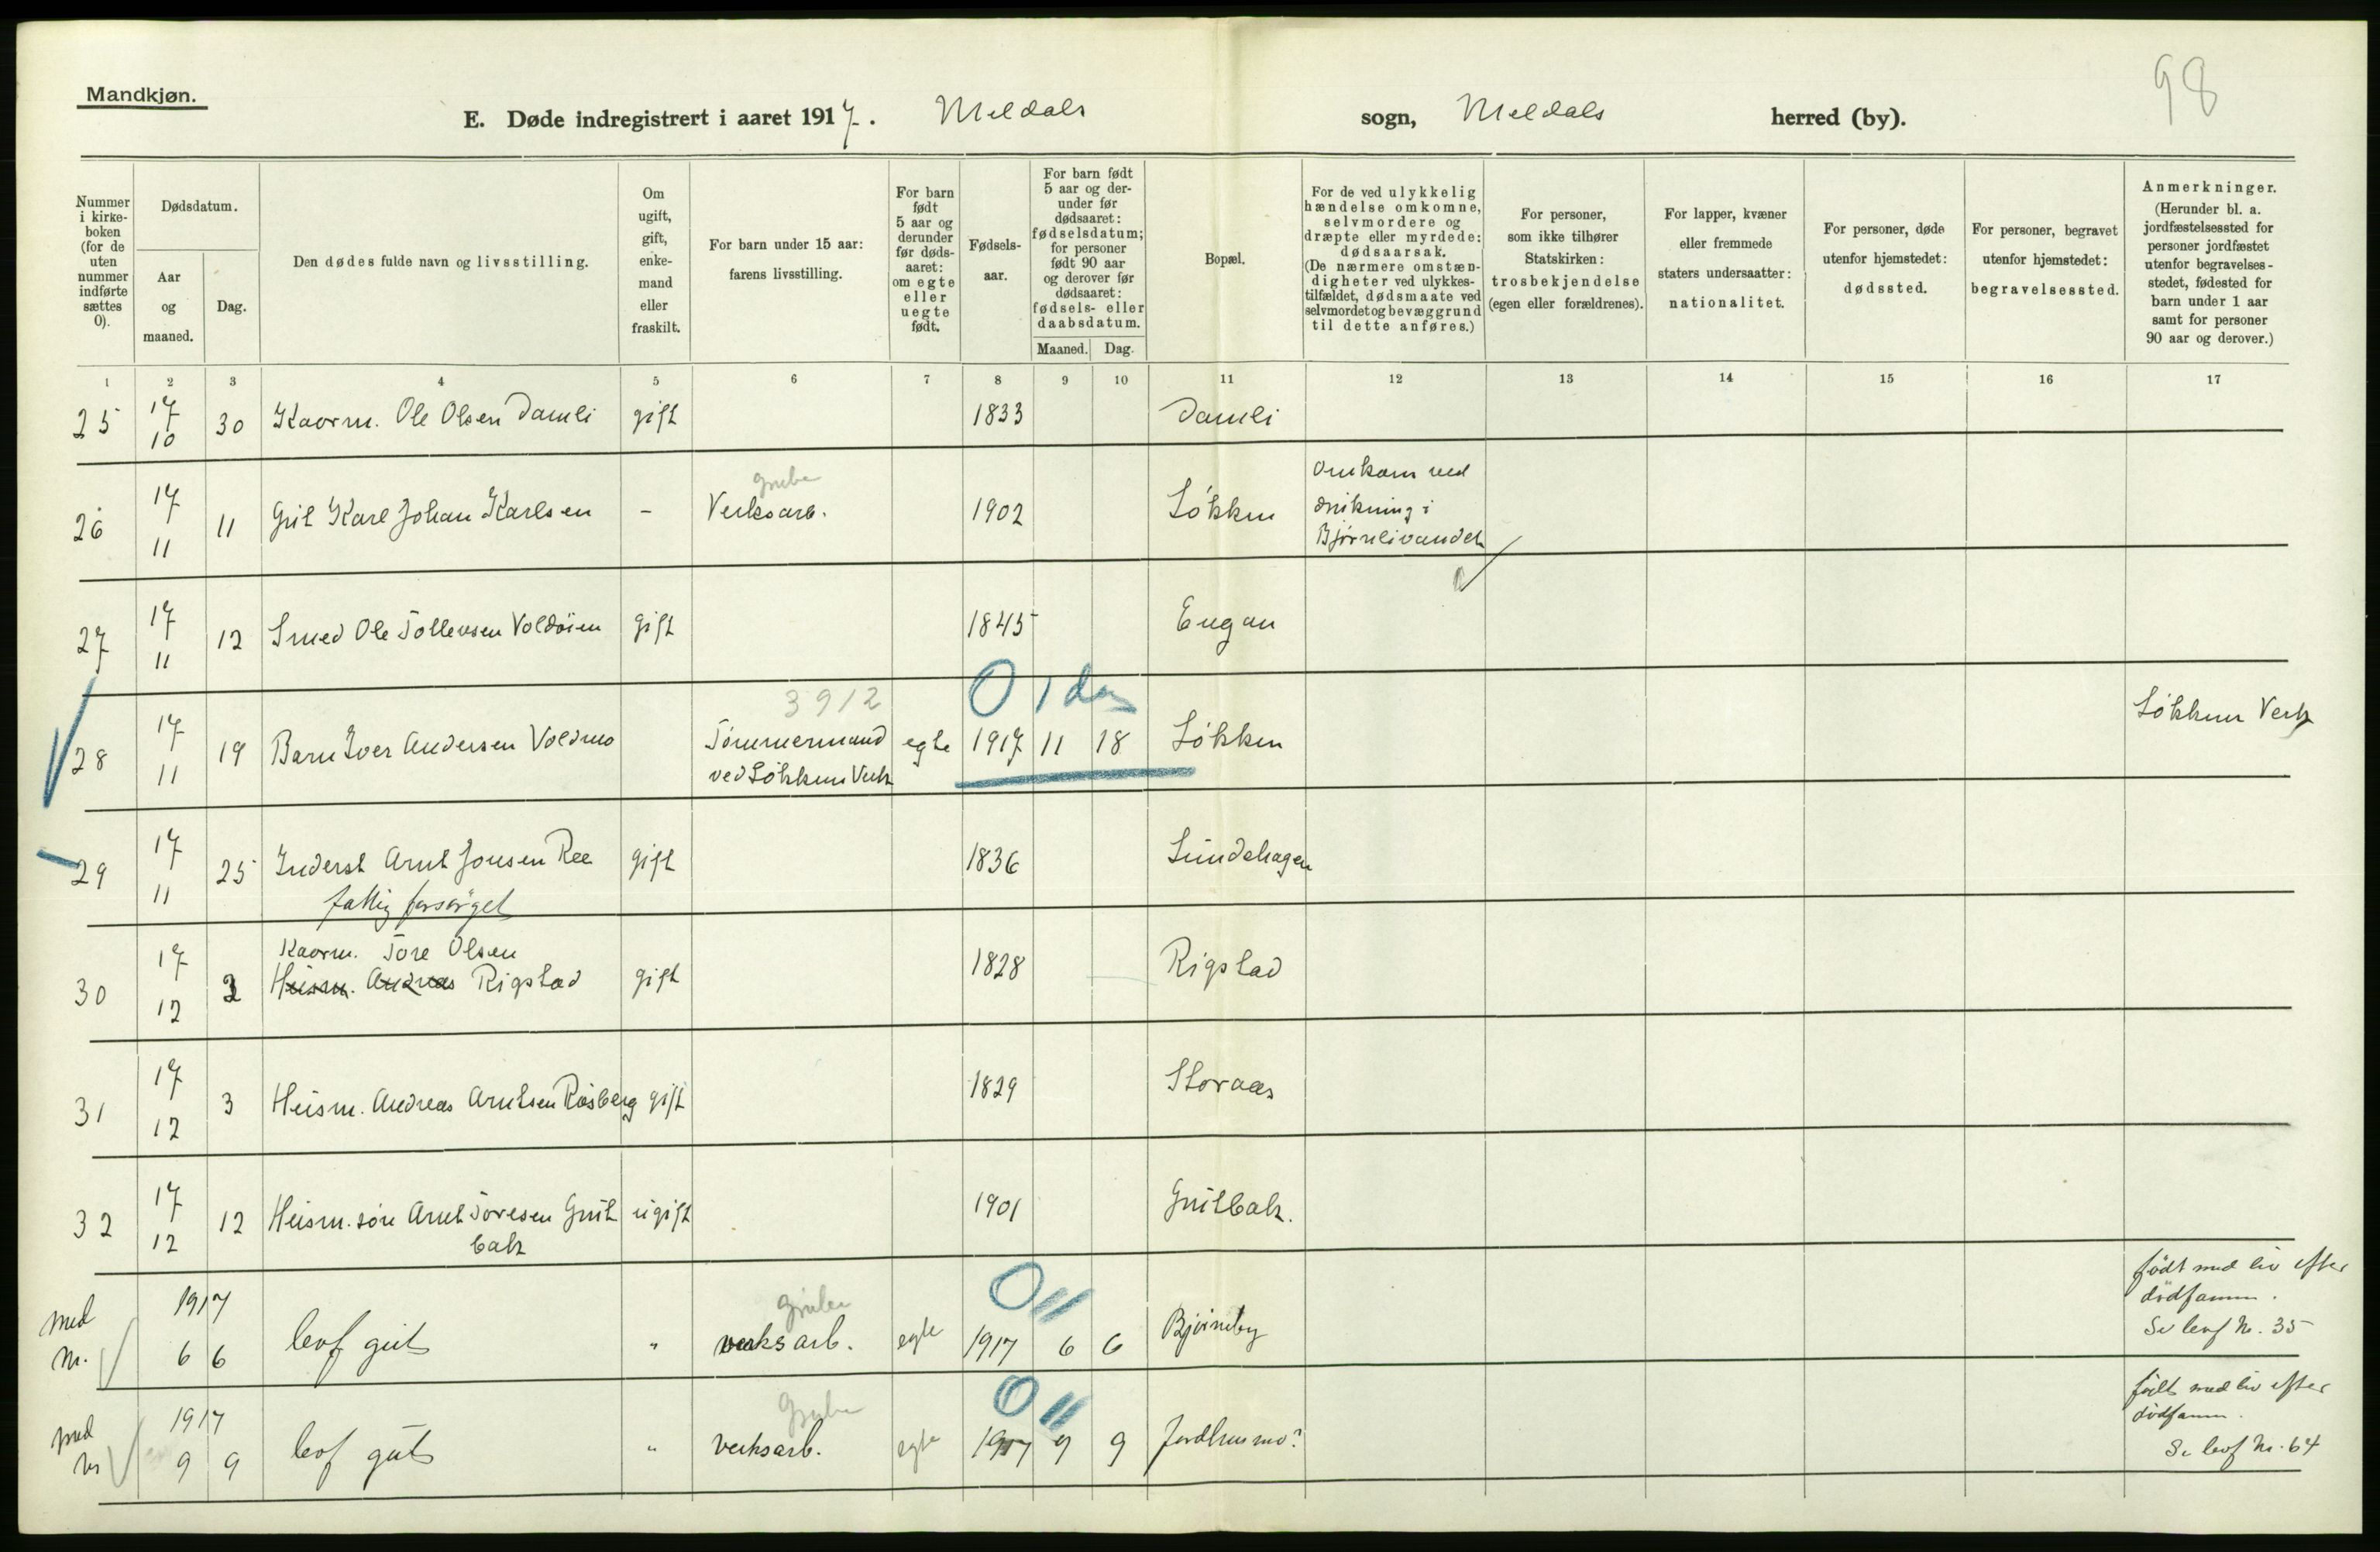 Mandkjøn.
98
E. Døde indregistrert i aaret 1917. Meldals sogn, Meldals herred (by).
Nummer i kirke- boken (for de uten nummer indførte sættes 0).
Dødsdatum.
Aar og maaned.
Dag.
Den dødes fulde navn og livsstilling.
Om ugift, gift, enke- mand eller fraskilt.
For barn under 15 aar: farens livsstilling.
For barn født 5 aar og derunder før døds- aaret: om egte eller uegte født.
Fødsels- aar.
For barn født 5 aar og der- under før dødsaaret: fødselsdatum; for personer født 90 aar og derover før dødsaaret: fødsels- eller daabsdatum.
Maaned. Dag.
Bopæl.
For de ved ulykkelig hændelse omkomne, selvmordere og dræpte eller myrdede: dødsaarsak. (De nærmere omstæn- digheter ved ulykkes- tilfældet, dødsmaate ved selvmordet og bevæggrund til dette anføres.)
For personer, som ikke tilhører Statskirken: trosbekjendelse (egen eller forældrenes).
For lapper, kvæner eller fremmede staters undersaatter: nationalitet.
For personer, døde utenfor hjemstedet: dødssted.
For personer, begravet utenfor hjemstedet: begravelsessted.
Anmerkninger. (Herunder bl. a. jordfæstelsessted for personer jordfæstet utenfor begravelses- stedet, fødested for barn under 1 aar samt for personer 90 aar og derover.)
1 2 3 4 5 6 7 8 9 10 11 12 13 14 15 16 17
25 17 10 30 Kaarm. Ole Olsen Damli gift 1833 Damli
26 17 11 11 Gut Karl Johan Karlsen - Grube Verksarb. 1902 Løkken Omkom ved
drukning i
Bjørnlivandet
27 17 11 12 Smed Ole Tollevsen Voldøien gift 1845 Engan
3912 0 1 dag
28 17 11 19 Barn Iver Andersen Voldmo Tømmermand egte 1917 11 18 Løkken Løkken Verk
ved Løkken Verk
29 17 11 25 Inderst Arnt Jonsen Ree gift 1836 Lundehagen
fattig forsørget
Kaarm. Tore Olsen
30 17 12 2 Husm. Andreas Rigstad gift 1828 Rigstad
31 17 12 3 Husm. Andreas Arntsen Rosberg gift 1829 Storaas
32 17 12 12 Husm. søn Arnt Toresen Grut ugift 1901 Grutbak.
bak
med Nr. 1917 6 6 levf gut " Grube verksarb. egte 0 11 1917 6 6 Bjørnby født med liv efter
dødfamm.
Se levf Nr. 35
med Nr 1917 9 9 levf gut " Grube verksarb. egte 0 11 1917 9 9 født med liv efter
dødfamm.
Se levf Nr. 64